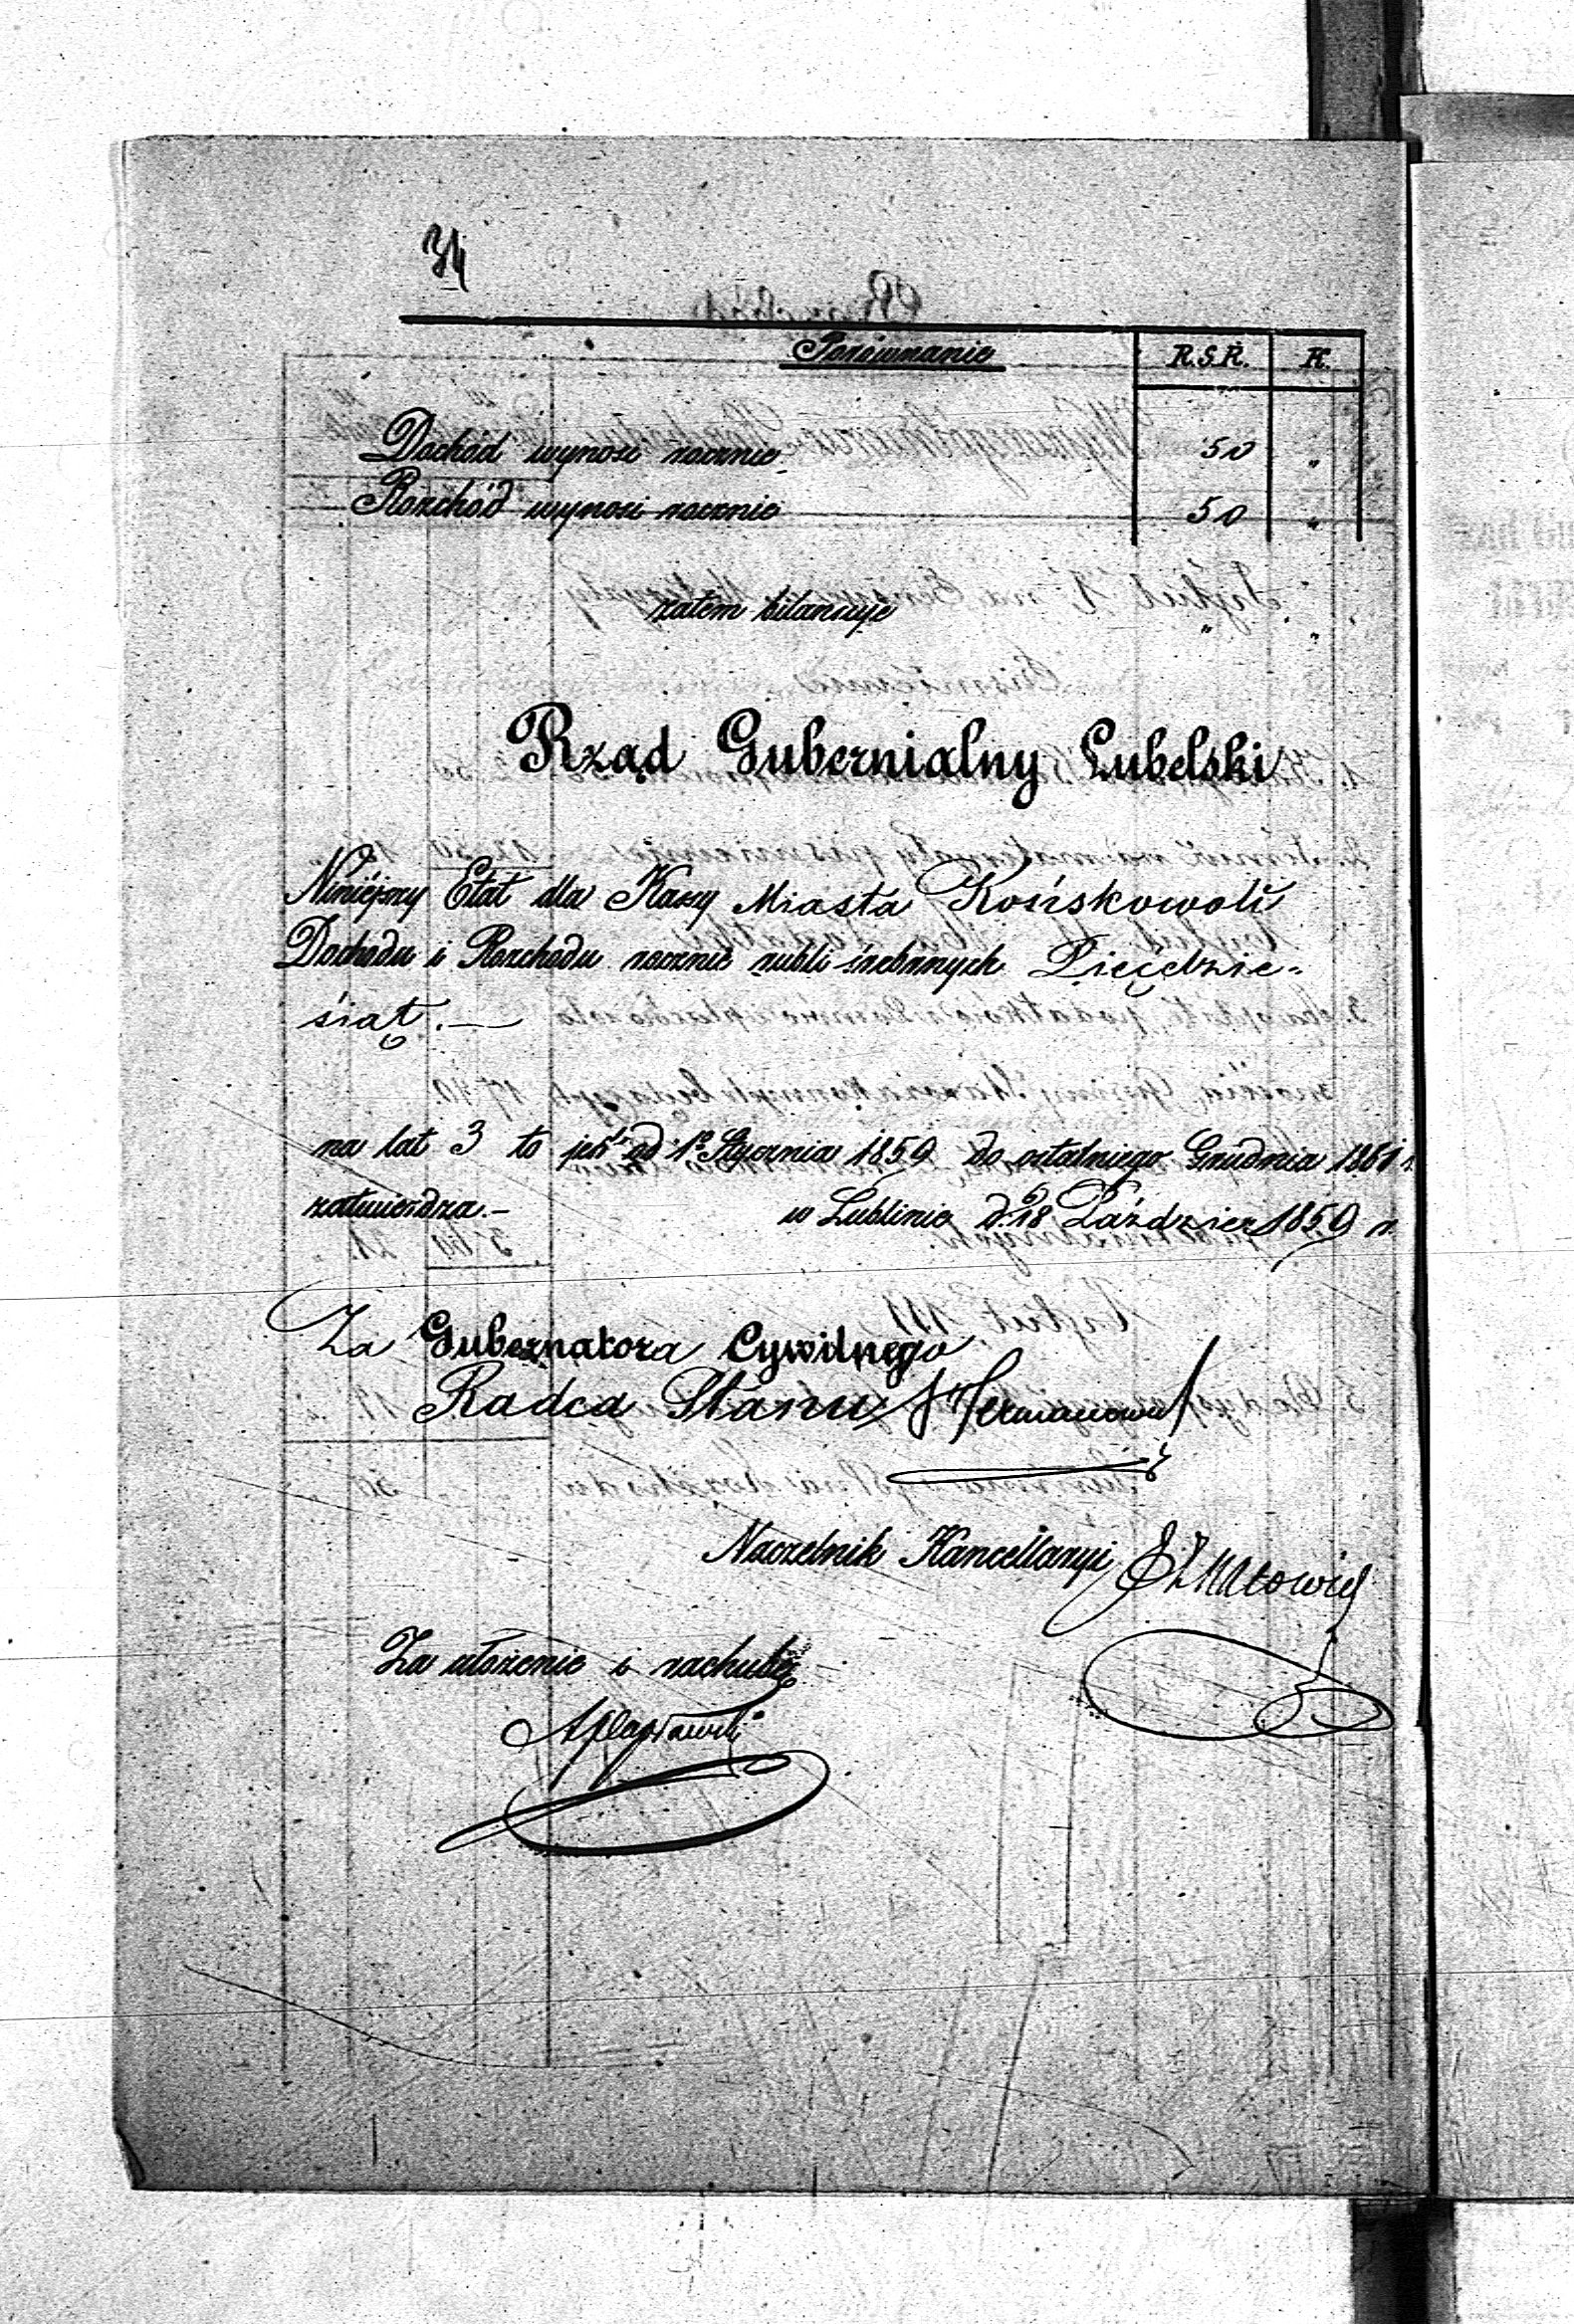 34
Porównanie R.S.R. K.
Dochód wynosi rocznie 50 "
Rozchód wynosi rocznie 50 "
zatem bilansuje " "
Rząd Gubernialny Lubelski
Niniéjszy Etat dla Kassy Miasta Końskowoli
Dochodu i Rozchodu rocznie rubli srebrnych Pięćdzie=
siąt.—
na lat 3 to jest od 1º Stycznia 1859 do ostatniego Grudnia 1861 r.
zatwierdza.— w Lublinie d. 6/18 Paździer 1859 r.
Za Gubernatora Cywilnego
Radca Stanu
Naczelnik Kancellaryi
Za ułożenie i rachubę